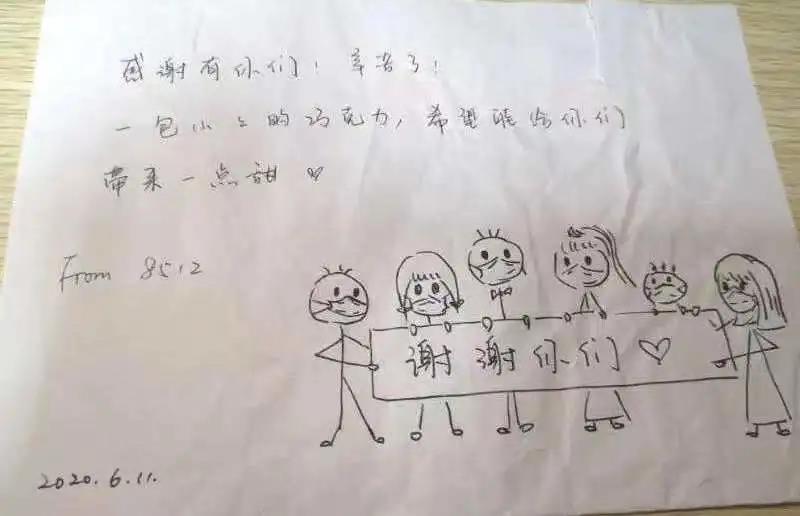 感谢有你们！辛苦了！
一包小小的巧克力，希望能给你们
带来一点甜♡
From 8512
谢谢你们♡
2020.6.11.